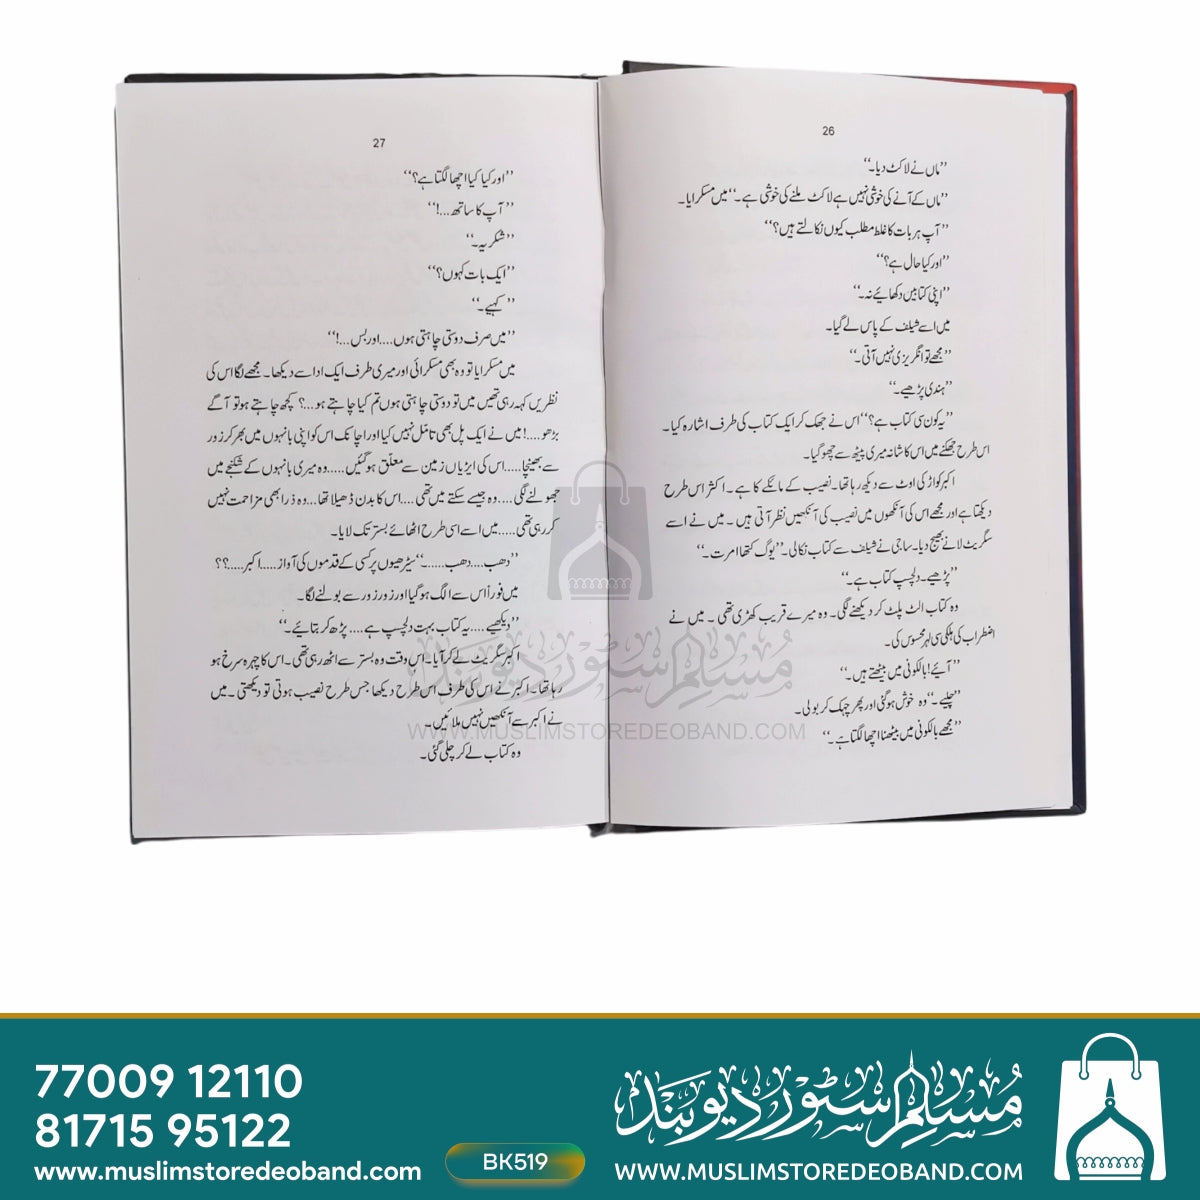 26
”ماں نے لاکٹ دیا۔“
”ماں کے آنے کی خوشی نہیں ہے لاکٹ ملنے کی خوشی ہے۔“ میں مسکرایا۔
”آپ ہر بات کا غلط مطلب کیوں نکالتے ہیں؟“
”اور کیا حال ہے؟“
”اپنی کتابیں دکھائیے نہ۔“
میں اسے شیلف کے پاس لے گیا۔
”مجھے تو انگریزی نہیں آتی۔“
”ہندی پڑھیے۔“
”یہ کون سی کتاب ہے؟“ اس نے جھک کر ایک کتاب کی طرف اشارہ کیا۔
اس طرح جھکنے میں اس کا شانہ میری پیٹھ سے چھو گیا۔
اکبر کواڑ کی اوٹ سے دیکھ رہا تھا۔ نصیب کے مائکے کا ہے۔ اکثر اس طرح
دیکھتا ہے اور مجھے اس کی آنکھوں میں نصیب کی آنکھیں نظر آتی ہیں۔ میں نے اسے
سگریٹ لانے بھیج دیا۔ ساجی نے شیلف سے کتاب نکالی۔ ”یوگ کتھا امرت۔“
”پڑھیے۔ دلچسپ کتاب ہے۔“
وہ کتاب الٹ پلٹ کر دیکھنے لگی۔ وہ میرے قریب کھڑی تھی۔ میں نے
اضطراب کی ہلکی سی لہر محسوس کی۔
”آئیے! بالکونی میں بیٹھتے ہیں۔“
”چلیے۔“ وہ خوش ہو گئی اور پھر چہک کر بولی۔
”مجھے بالکونی میں بیٹھنا اچھا لگتا ہے۔“
27
”اور کیا کیا اچھا لگتا ہے؟“
”آپ کا ساتھ...!“
”شکریہ۔“
”ایک بات کہوں؟“
”کہیے۔“
”میں صرف دوستی چاہتی ہوں.... اور بس...!“
میں مسکرایا تو وہ بھی مسکرائی اور میری طرف ایک ادا سے دیکھا۔ مجھے لگا اس کی
نظریں کہہ رہی تھیں میں تو دوستی چاہتی ہوں تم کیا چاہتے ہو...؟ کچھ چاہتے ہو تو آگے
بڑھو....! میں نے ایک پل بھی تامّل نہیں کیا اور اچانک اس کو اپنی بانہوں میں بھر کر زور
سے بھینچا..... اس کی ایڑیاں زمین سے معلّق ہو گئیں..... وہ میری بانہوں کے شکنجے میں
جھولنے لگی.... وہ جیسے سکتے میں تھی.... اس کا بدن ڈھیلا تھا... وہ ذرا بھی مزاحمت نہیں
کر رہی تھی..... میں اسے اسی طرح اٹھائے بستر تک لایا۔
”دھب.... دھب.....“ سیڑھیوں پر کسی کے قدموں کی آواز.... اکبر.....؟؟
میں فوراً اس سے الگ ہو گیا اور زور زور سے بولنے لگا۔
”دیکھیے..... یہ کتاب بہت دلچسپ ہے.... پڑھ کر بتائیے۔“
اکبر سگریٹ لے کر آیا۔ اس وقت وہ بستر سے اٹھ رہی تھی۔ اس کا چہرہ سرخ ہو
رہا تھا۔ اکبر نے اس کی طرف اس طرح دیکھا جس طرح نصیب ہوتی تو دیکھتی۔ میں
نے اکبر سے آنکھیں نہیں ملائیں۔
وہ کتاب لے کر چلی گئی۔
مسلم سٹور دیوبند
WWW.MUSLIMSTOREDEOBAND.COM
77009 12110
81715 95122
www.muslimstoredeoband.com
BK519
مسلم سٹور دیوبند
WWW.MUSLIMSTOREDEOBAND.COM